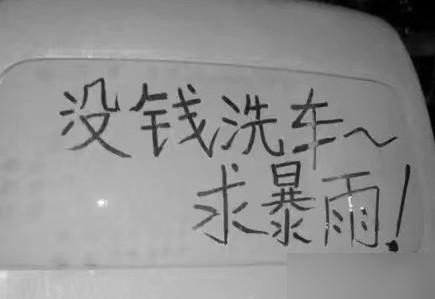 没钱洗车~
求暴雨!